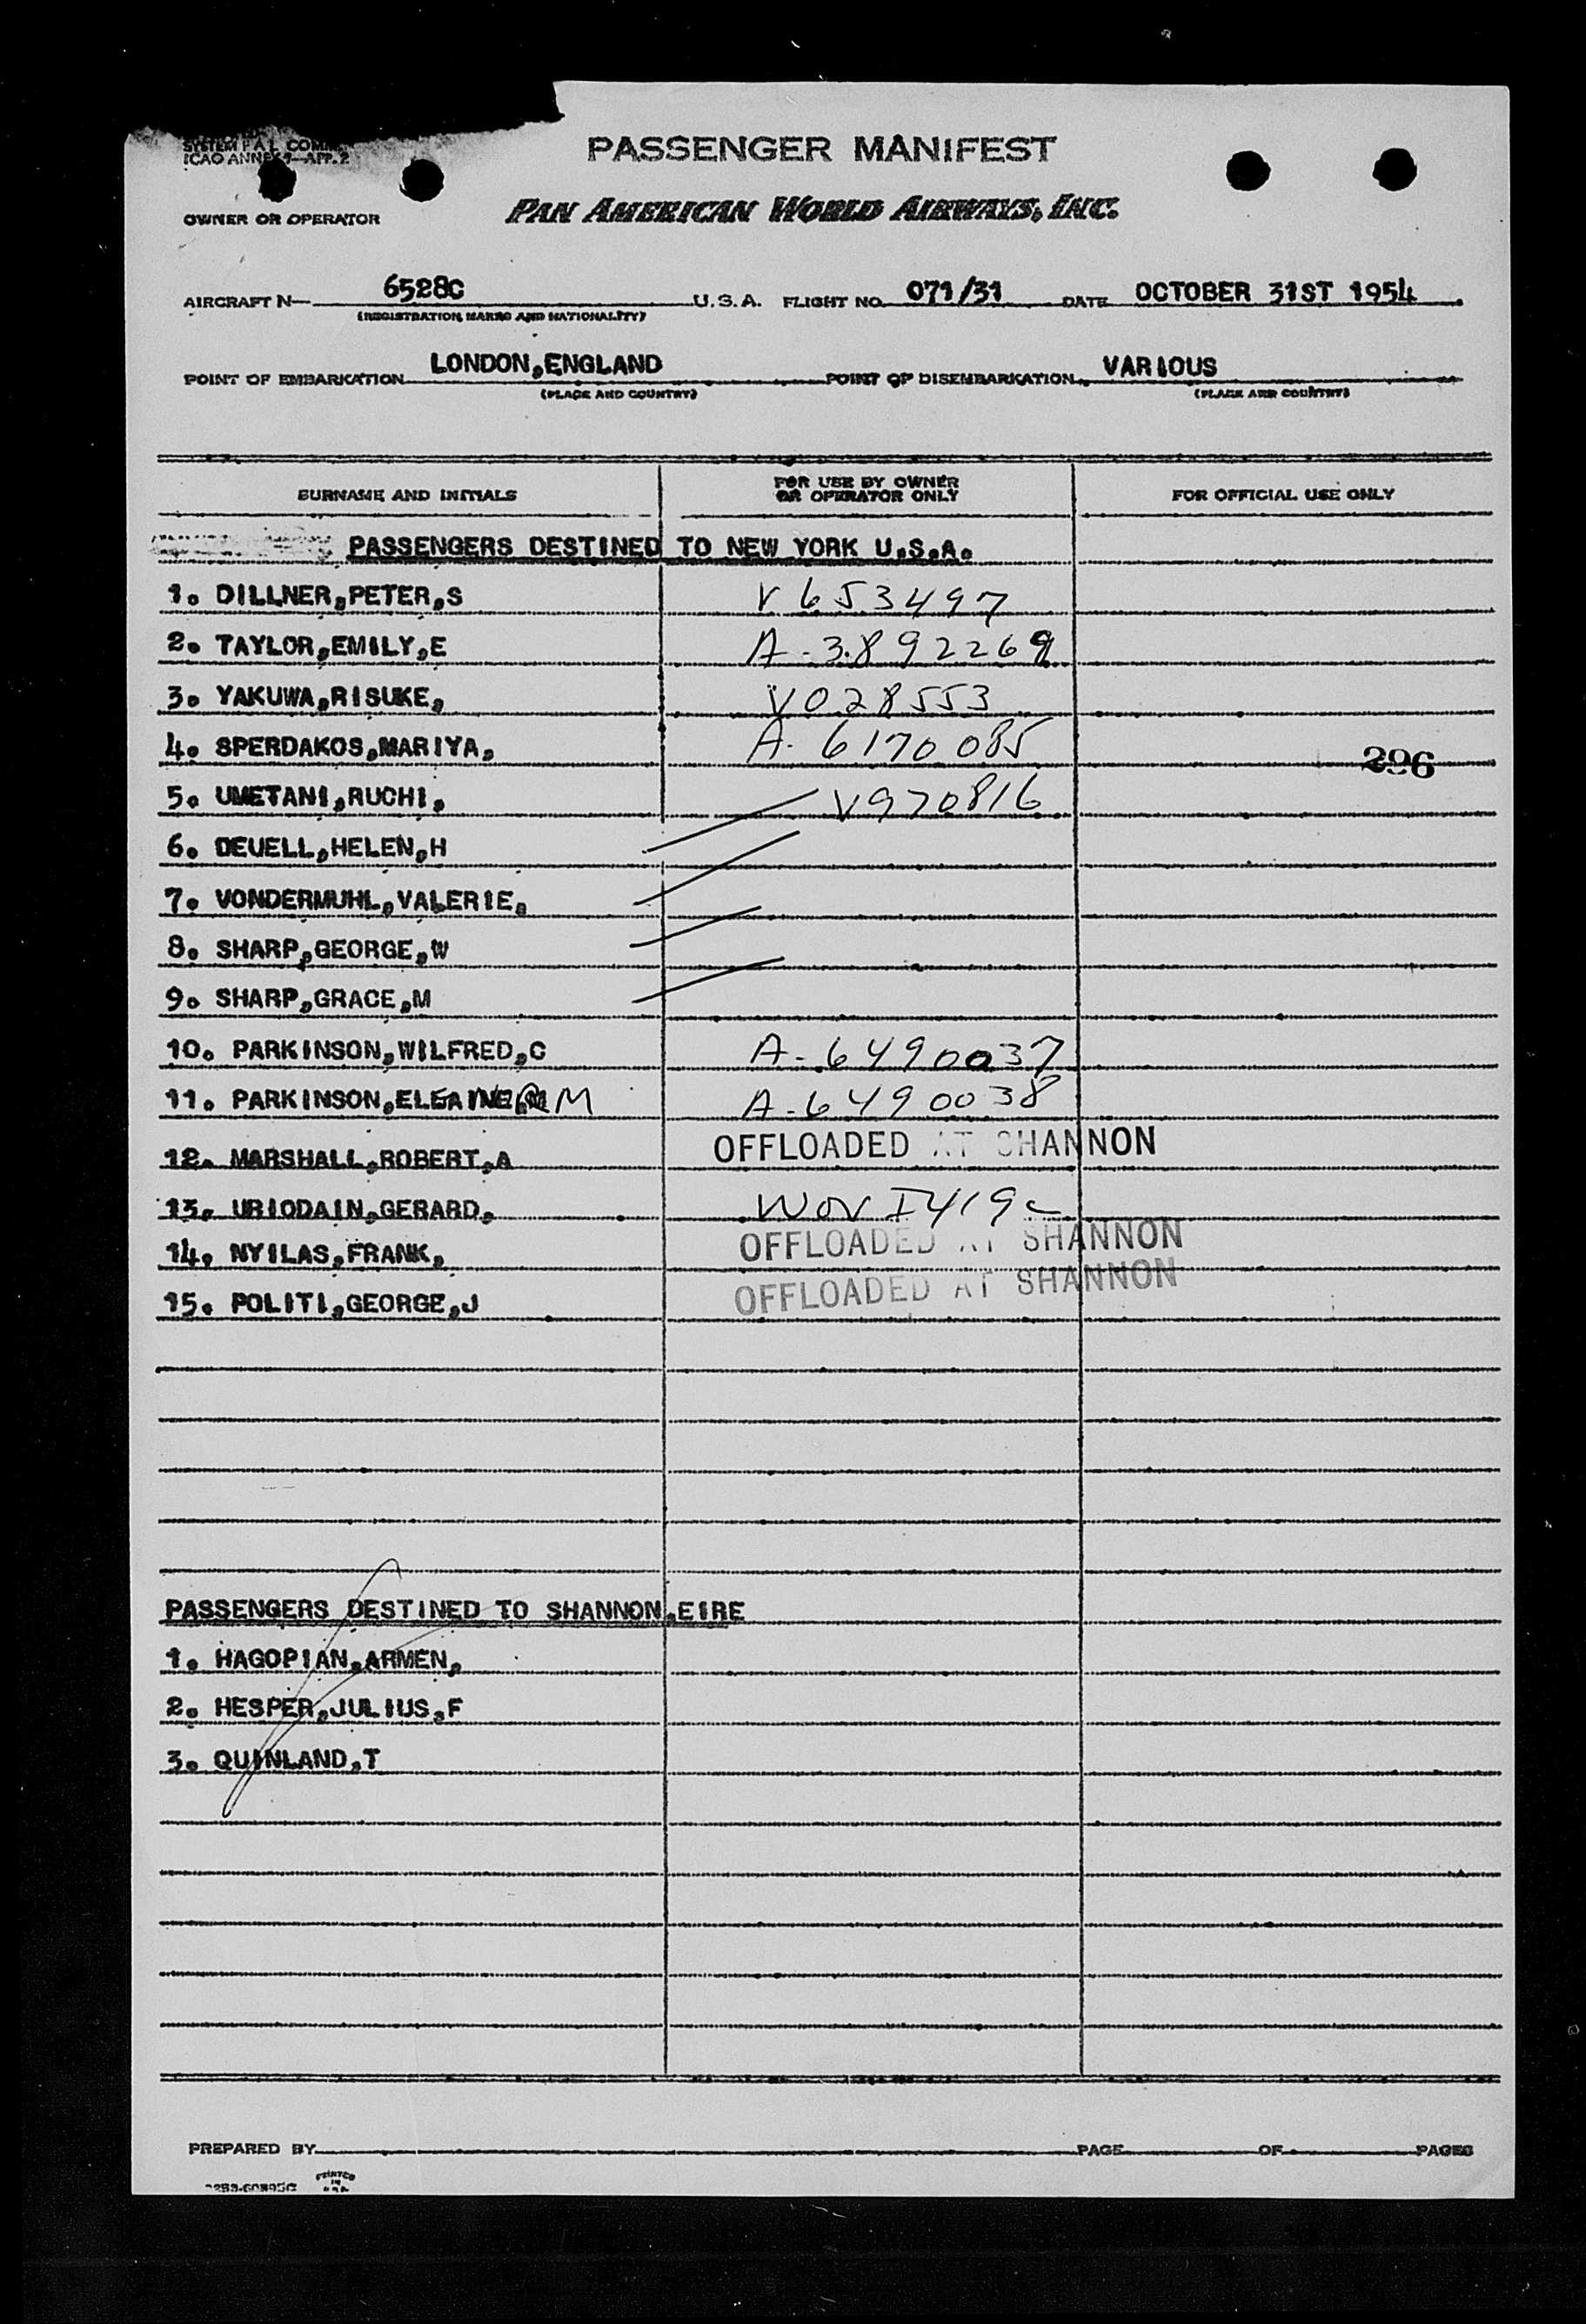 SYSTEM F A L COMM
ICAO ANNEX 9—APP. 2
PASSENGER MANIFEST
OWNER OR OPERATOR PAN AMERICAN WORLD AIRWAYS, INC.
AIRCRAFT N— 6528C U.S.A. FLIGHT NO. 071/31 DATE OCTOBER 31ST 1954
(REGISTRATION MARKS AND NATIONALITY)
POINT OF EMBARKATION LONDON,ENGLAND POINT OF DISEMBARKATION VARIOUS
(PLACE AND COUNTRY) (PLACE AND COUNTRY)
SURNAME AND INITIALS FOR USE BY OWNER OR OPERATOR ONLY FOR OFFICIAL USE ONLY
PASSENGERS DESTINED TO NEW YORK U.S.A.
1. DILLNER,PETER,S V 653497
2. TAYLOR,EMILY,E A-3892269
3. YAKUWA,RISUKE, V028553
4. SPERDAKOS,MARIYA, A-6170085
296
5. UMETANI,RUCHI, V970816
6. DEUELL,HELEN,H
7. VONDERMUHL,VALERIE,
8. SHARP,GEORGE,W
9. SHARP,GRACE,M
10. PARKINSON,WILFRED,C A-6490037
11. PARKINSON,ELEAINE M A-6490038
12. MARSHALL,ROBERT,A OFFLOADED AT SHANNON
13. URIODAIN,GERARD,
14. NYILAS,FRANK, OFFLOADED AT SHANNON
15. POLITI,GEORGE,J OFFLOADED AT SHANNON
PASSENGERS DESTINED TO SHANNON,EIRE
1. HAGOPIAN,ARMEN,
2. HESPER,JULIUS,F
3. QUINLAND,T
PREPARED BY PAGE OF PAGES
PRINTED
IN
U.S.A.